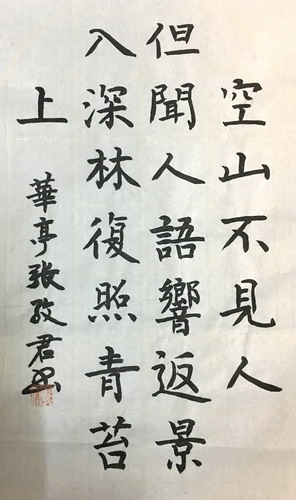 空山不見人
但聞人語響返景
入深林復照青苔
上
華亭張孜君書